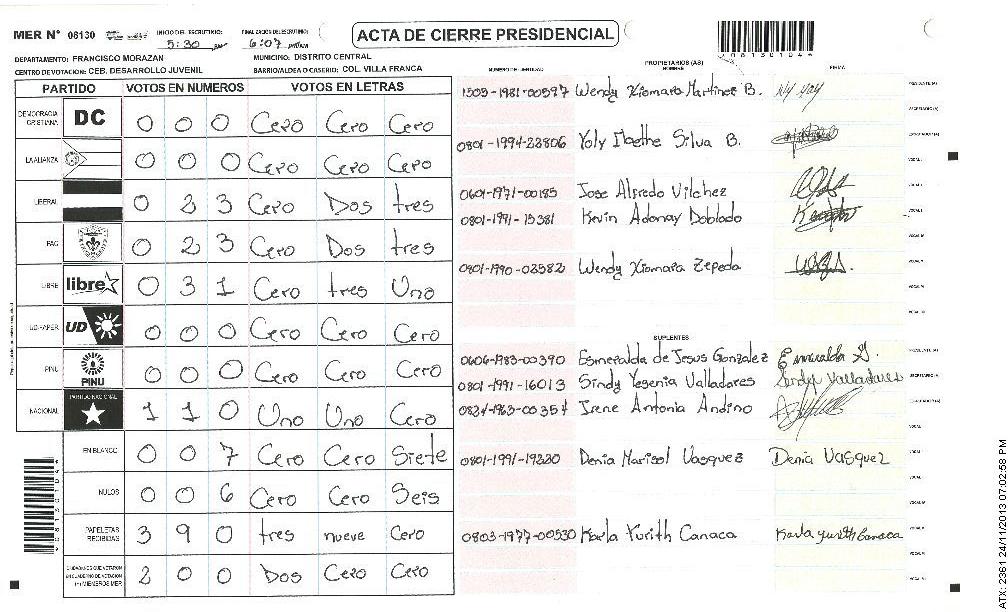 MER Nº 08130 INICIO DEL ESCRUTINIO: 5:30 pm FINALIZACION DEL ESCRUTINIO: 6:07 pm ACTA DE CIERRE PRESIDENCIAL
DEPARTAMENTO: FRANCISCO MORAZAN MUNICIPIO: DISTRITO CENTRAL
CENTRO DE VOTACION: CEB. DESARROLLO JUVENIL BARRIO/ALDEA O CASERIO: COL. VILLA FRANCA
PARTIDO VOTOS EN NUMEROS VOTOS EN LETRAS
DEMOCRACIA CRISTIANA DC 0 0 0 Cero Cero Cero
LA ALIANZA 0 0 0 Cero Cero Cero
LIBERAL 0 2 3 Cero Dos tres
PAC 0 2 3 Cero Dos tres
LIBRE libre 0 3 1 Cero tres Uno
UD-FAPER UD 0 0 0 Cero Cero Cero
PINU PINU 0 0 0 Cero Cero Cero
NACIONAL PARTIDO NACIONAL 1 1 0 Uno Uno Cero
EN BLANCO 0 0 7 Cero Cero Siete
NULOS 0 0 6 Cero Cero Seis
PAPELETAS RECIBIDAS 3 9 0 tres nueve Cero
CIUDADANOS QUE VOTARON EN CUADERNO DE VOTACION 2 0 0 Dos Cero Cero
NUMERO DE IDENTIDAD PROPIETARIOS (AS) NOMBRE FIRMA
1503-1981-00597 Wendy Xiomara Martinez B.
0801-1994-22806 Yoly Maethe Silva B.
0601-1971-00185 Jose Alfredo Vilchez
0801-1991-15381 Kevin Adonay Doblado
0801-1990-02582 Wendy Xiomara Zepeda
SUPLENTES
0606-1983-00390 Esmeralda de Jesus Gonzalez Esmeralda G.
0801-1991-16013 Sindy Yesenia Valladares Sindy Valladares
0824-1963-00357 Irene Antonia Andino
0801-1991-19220 Denia Marisol Vasquez Denia Vasquez
0803-1977-00530 Karla Yurith Canaca Karla Yurith Canaca
ATX: 2361 24/11/2013 07:02:58 PM